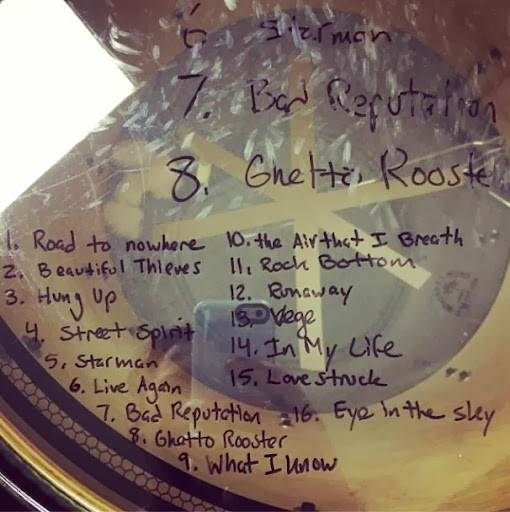 6 Starman
7. Bad Reputation
8. Ghetto Rooste
1. Road to nowhere
2. Beautiful Thieves
3. Hung Up
4. Street Spirit
5. Starman
6. Live Again
7. Bad Reputation
8. Ghetto Rooster
9. What I know
10. the Air that I Breath
11. Rock Bottom
12. Runaway
13. Vege
14. In My Life
15. Love struck
16. Eye In the sky